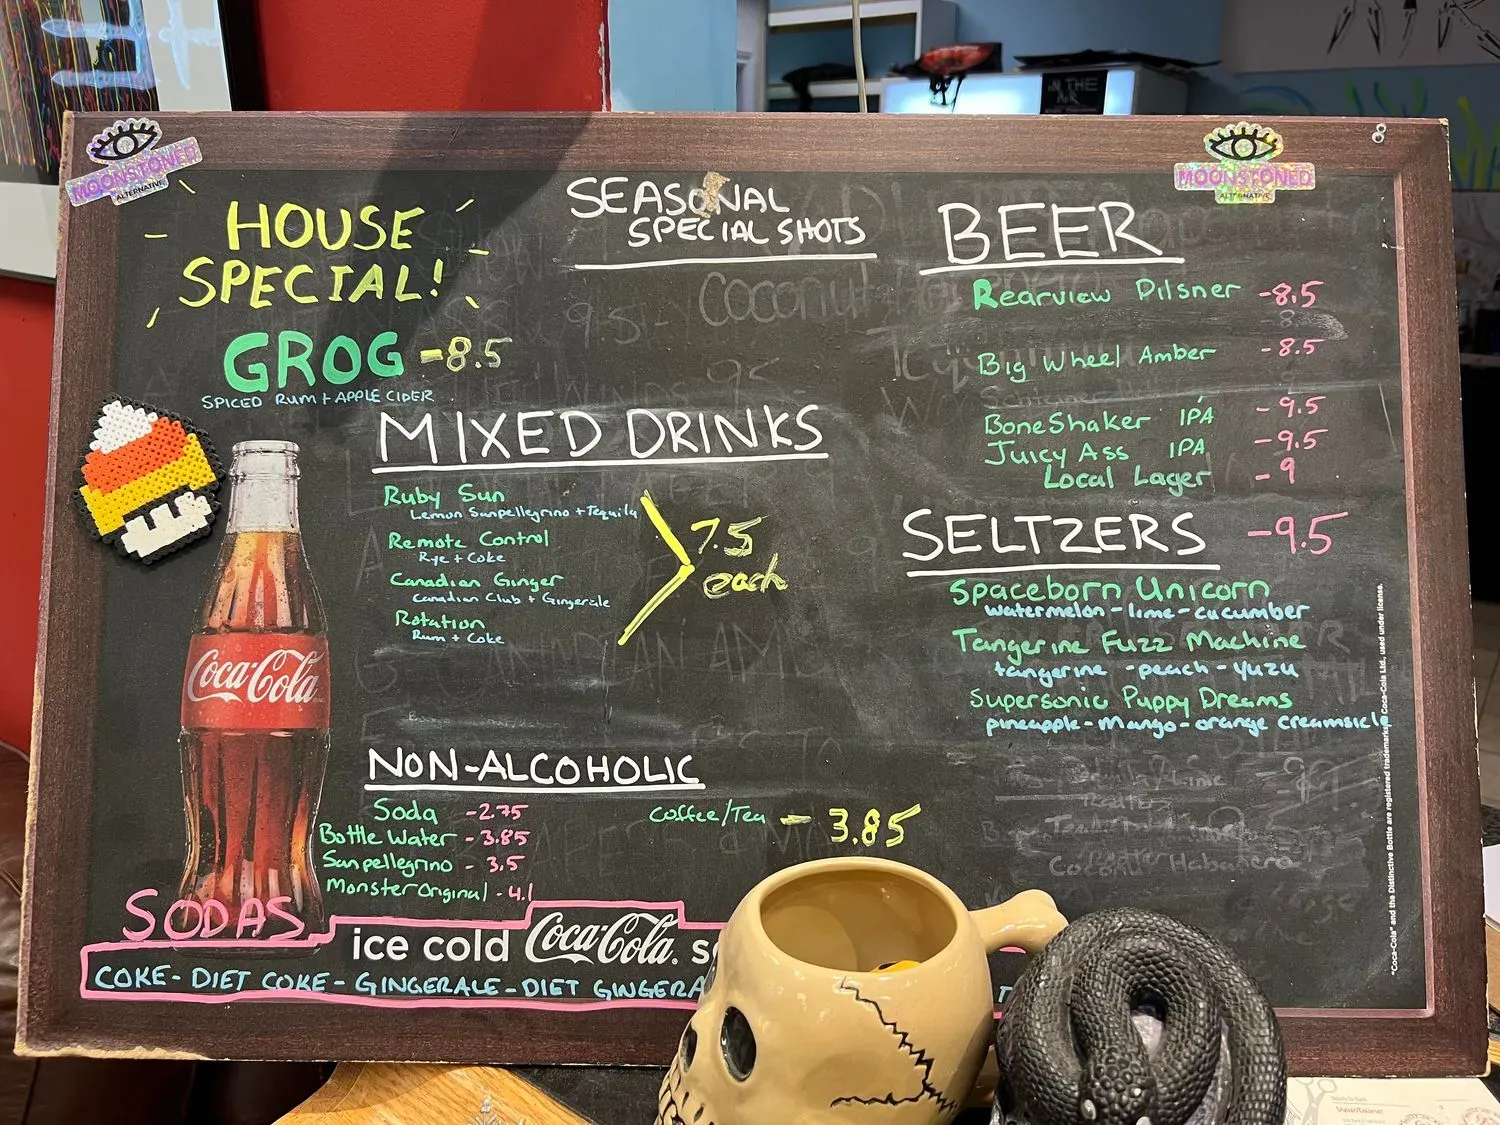 MOONSTONED
ALTERNATIVE
MOONSTONED
ALTERNATIVE
IN THE
HOUSE
SPECIAL!
GROG -8.5
SPICED RUM + APPLE CIDER
SEASONAL
SPECIAL SHOTS
Coconut
BEER
Rearview Pilsner -8.5
Big Wheel Amber -8.5
BoneShaker IPA -9.5
Juicy Ass IPA -9.5
Local Lager -9
MIXED DRINKS
Ruby Sun
Lemon Sanpellegrino + Tequila
Remote Control
Rye + Coke
Canadian Ginger
Canadian Club + Gingerale
Rotation
Rum + Coke
7.5
each
SELTZERS -9.5
Spaceborn Unicorn
watermelon - lime - cucumber
Tangerine Fuzz Machine
tangerine - peach - yuzu
Supersonic Puppy Dreams
pineapple - mango - orange creamsicle
NON-ALCOHOLIC
Soda -2.75
Bottle Water - 3.85
Sanpellegrino - 3.5
Monster Original - 4.1
Coffee/Tea - 3.85
Coca-Cola
SODAS
ice cold Coca-Cola. s
COKE - DIET COKE - GINGERALE - DIET GINGERA
"Coca-Cola" and the Distinctive Bottle are registered trademarks Coca-Cola Ltd., used under license.